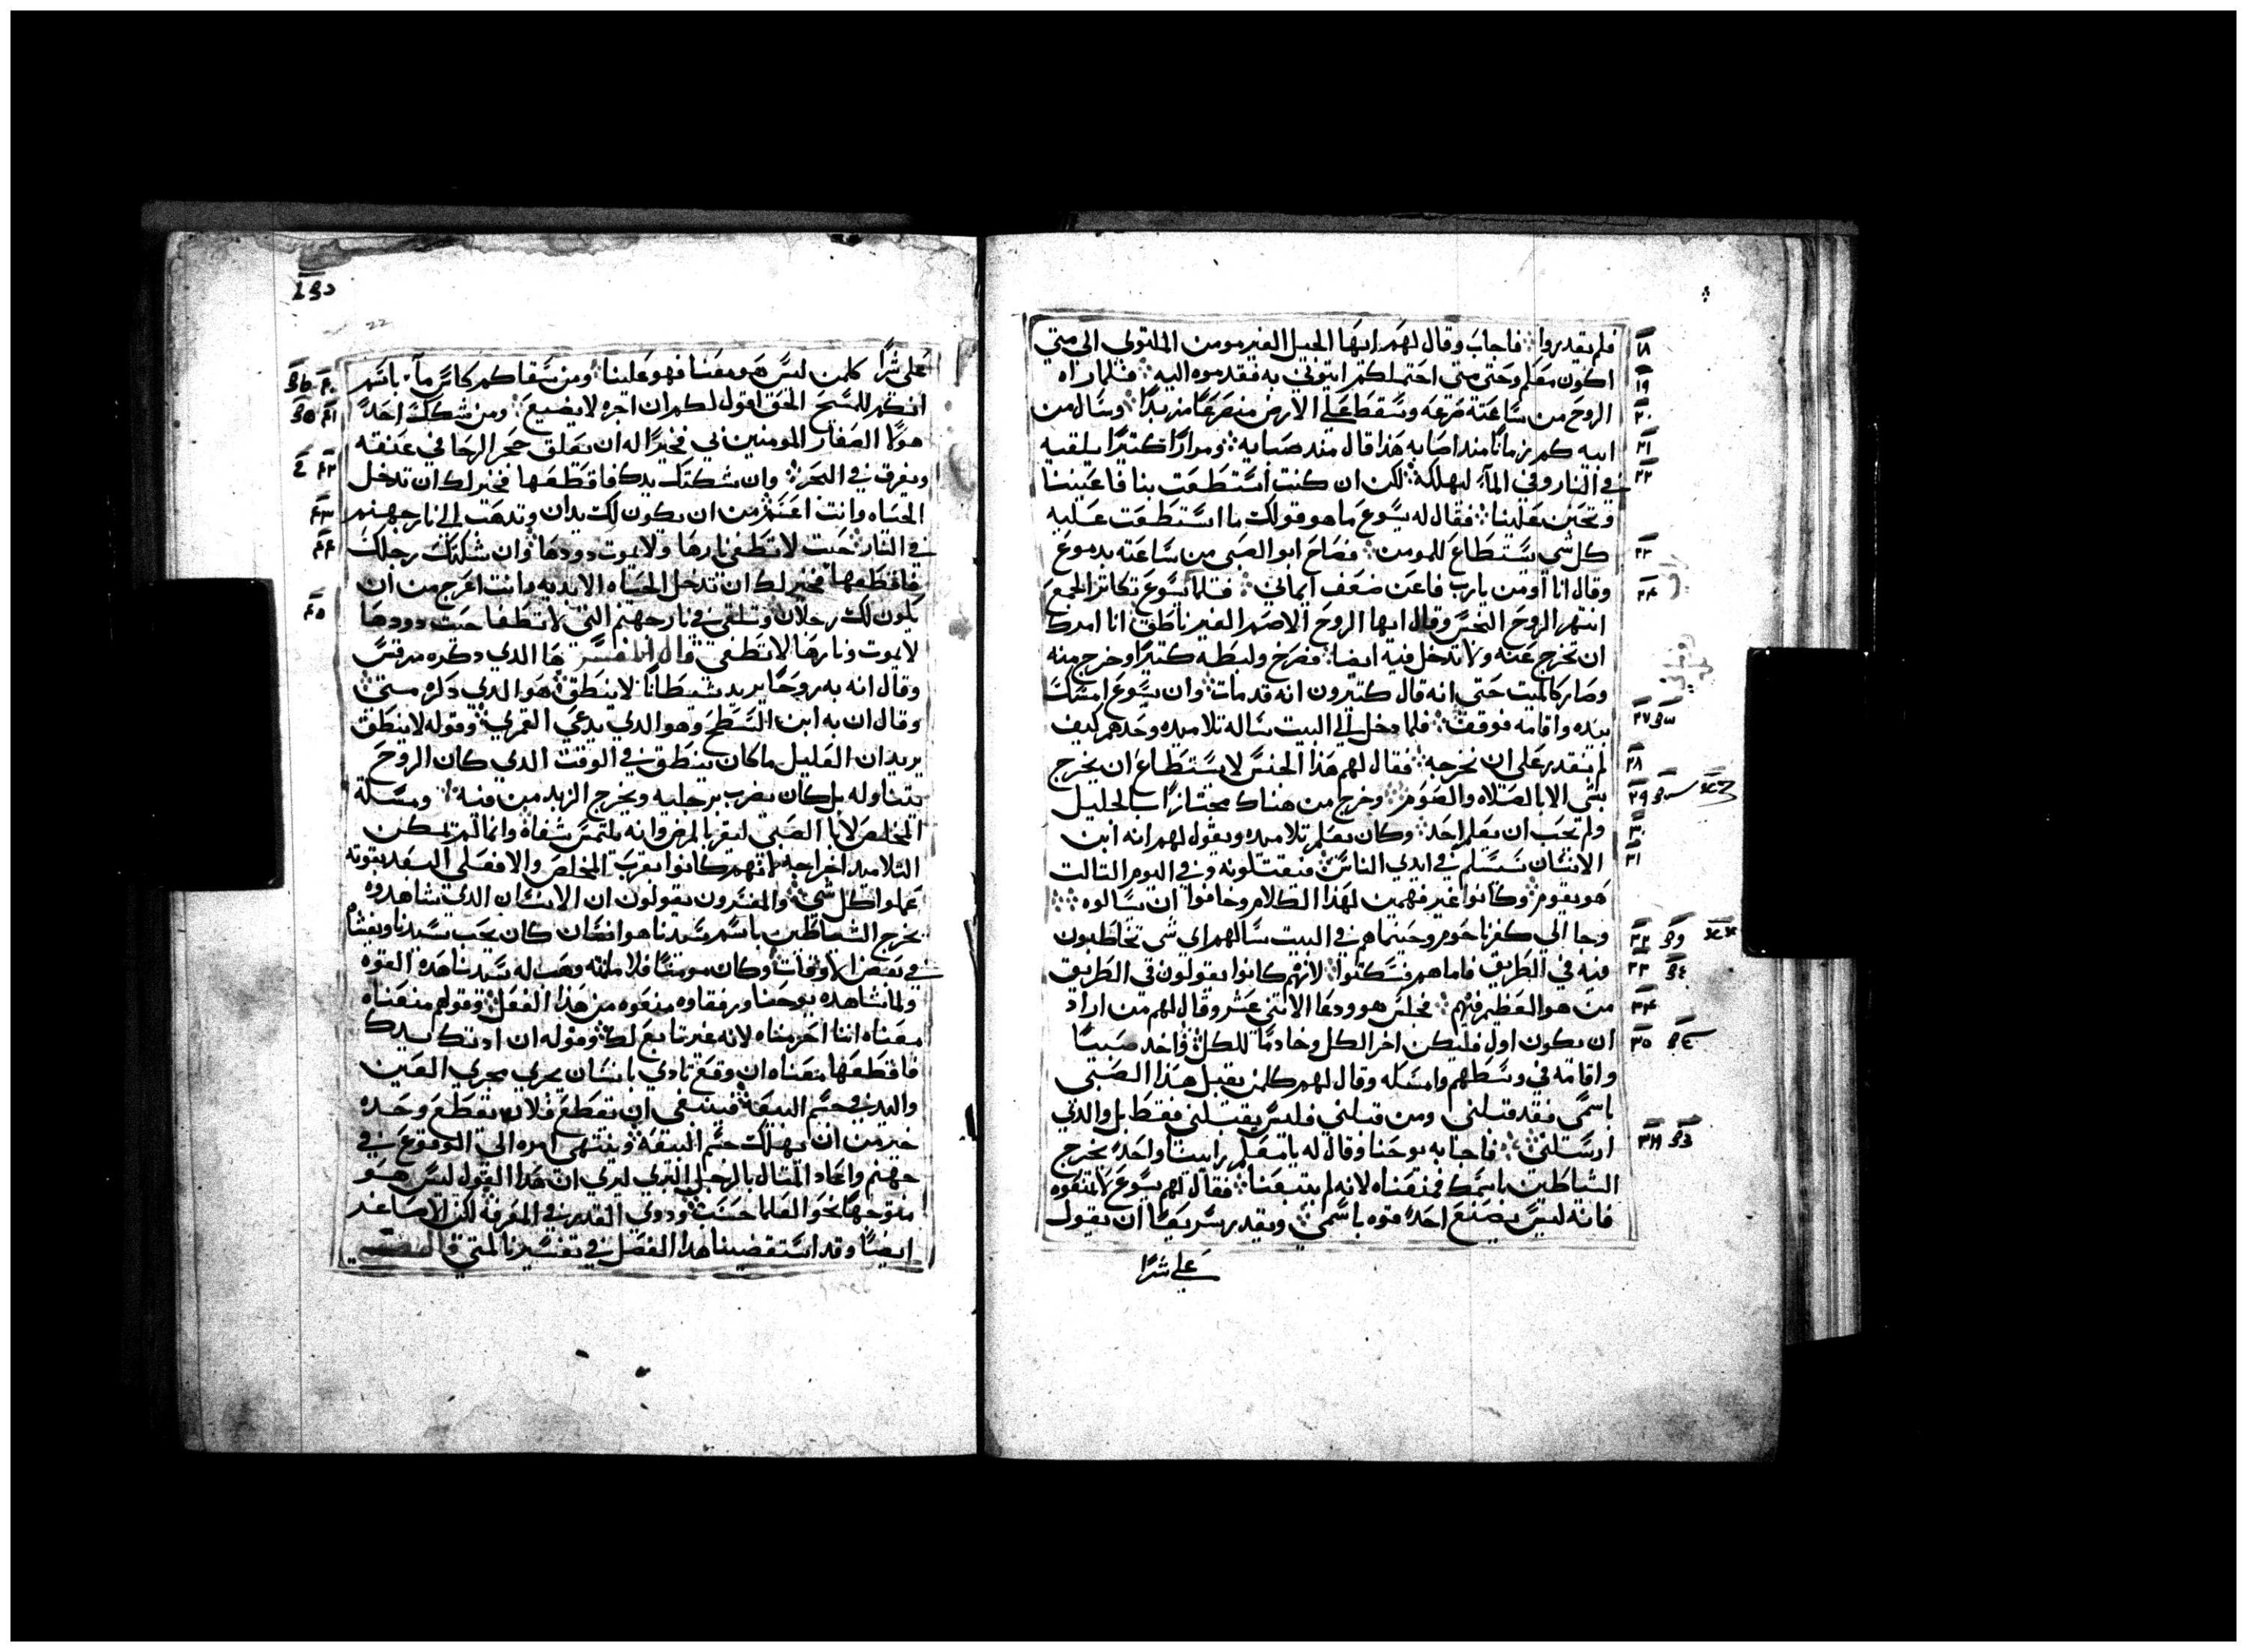 فلم يقدروا فاجاب وقال لهم ايها الجيل الغير مومن الملتوي الى متي
اكون معكم وحتى متى احتملكم ايتوني به فقدموه اليه فلما راه
الروح من ساعته صرعه وسقط على الارض منصرعًا مزبدًا وسال من
ابيه كم زمانًا مند اصابه هذا قال مند صبايه ومرارًا كتيرًا يلقيه
في النار وفي المآء ليهلكه لكن ان كنت استطعت بنا فاعيننا
وتحنن علينا فقال له يسوع ما هو قولك ما استطعت عليه
كل شي يستطاع للمومن فصاح ابو الصبي من ساعته بدموع
وقال انا اومن يارب فاعن ضعف ايماني فلما يسوع تكاتر الجمع
انتهر الروح النجس وقال ايها الروح الاصم الغير ناطق انا امرك
ان تخرج عنه ولا تدخل فيه ايضا فصرخ ولبطه كتيرًا وخرج منه
وصار كالميت حتى انه قال كتيرون انه قد مات وان يسوع امسك
بيده واقامه فوقف فلما دخل الي البيت ساله تلاميده وحدهم كيف
لم نقدر على ان نخرجه فقال لهم هذا الجنس لا يستطاع ان يخرج
بشي الا بالصلاه والصوم وخرج من هناك مجتازًا بالجليل
ولم يحب ان يعلم احد وكان يعلم تلاميده ويقول لهم انه ابن
الانسان سيسلم في ايدي الناس فيقتلونه وفي اليوم التالت
هو يقوم وكانوا غير فهمين لهذا الكلام وخافوا ان يسالوه
وجا الي كفرناحوم وحينما هم في البيت سالهم اي شي تخاطبون
فيه في الطريق فاما هم فسكتوا لانهم كانوا يقولون في الطريق
من هو العظيم فيهم فجلس هو ودعا الاتني عشر وقال لهم من اراد
ان يكون اول فليكن اخر الكل وخادمًا للكل واخد صبيًا
واقامه في وسطهم وامسكه وقال لهم كلمن يقبل هذا الصبي
باسمي فقد قبلني ومن قبلني فليس يقبلني فقط بل والدي
ارسلني فاجابه يوحنا وقال له يا معلم راينا واحدًا يخرج
الشياطين باسمك فمنعناه لانه لم يتبعنا فقال لهم يسوع لا تمنعوه
فانه ليس يصنع احد قوه باسمي ويقدر سريعًا ان يقول
على شرًا
على شرًا كلمن ليس هو معنا فهو علينا ومن سقاكم كاس مآء باسم
انكم للمسيح الحق اقول لكم ان اجره لا يضيع ومن شكك احد
هولا الصغار المومنين بي فخيرًا له ان يعلق حجر الرحا في عنقه
ويغرق في البحر وان شككتك يدك فاقطعها فخير لك ان تدخل
الحياه وانت اعسم من ان يكون لك يدان وتدهب الي نار جهنم
في النار حيت لا تطفي نارها ولا يموت دودها وان شككتك رجلك
فاقطعها فخير لك ان تدخل الحياه الابديه وانت اعرج من ان
يكون لك رجلان وتلقي في نار جهنم التي لا تطفا حيت دودها
لا يموت ونارها لا تطفي قال المفسر هدا الدي دكره مرقس
وقال انه به روحًا يريد شيطانًا لا ينطق هو الدي دكره متى
وقال ان به ابن السطح وهو الدي يدعي القمري وقوله لا ينطق
يريد ان العليل ما كان ينطق في الوقت الدي كان الروح
يتخاوله بل كان يضرب برجليه ويخرج الزبد من فيه ومسلة
المخلص لابا الصبي ليقر بالمرض وانه يلتمس شفاه وانما لم يمكن
التلاميد اخراجه لانهم كانوا بقرب المخلص والا فعلى البعد بقوته
عملوا كل شي والمفسرون يقولون ان الانسان الدي شاهدوه
يخرج الشياطين باسم سيدنا هو انسان كان يحب سيدنا ويغشاه
في بعض الاوقات وكان مومنًا فلامانته وهب له سيدنا هده القوه
ولما شاهده يوحنا ورفقاوه منعوه من هدا الفعل وقولهم منعناه
معناه اننا احرمناه لانه غير تابع لك وقوله ان ادتك يدك
فاقطعها معناه ان وقع تادي بانسان يجري مجري العين
واليد في جسم البيعه فينبغي ان يقطع فلان يقطع وحده
خير من ان يهلك جسم البيعه وينتهى امره الى الوقوع في
جهنم واعاد المتال بالرجل اليري ان هدا القول ليس هو
متوجهًا نحو العلما حسب ودوي القدر في المعرفه لكن الاصاغر
ايضًا وقد استقضينا هدا الفصل في تفسيرنا لمتي